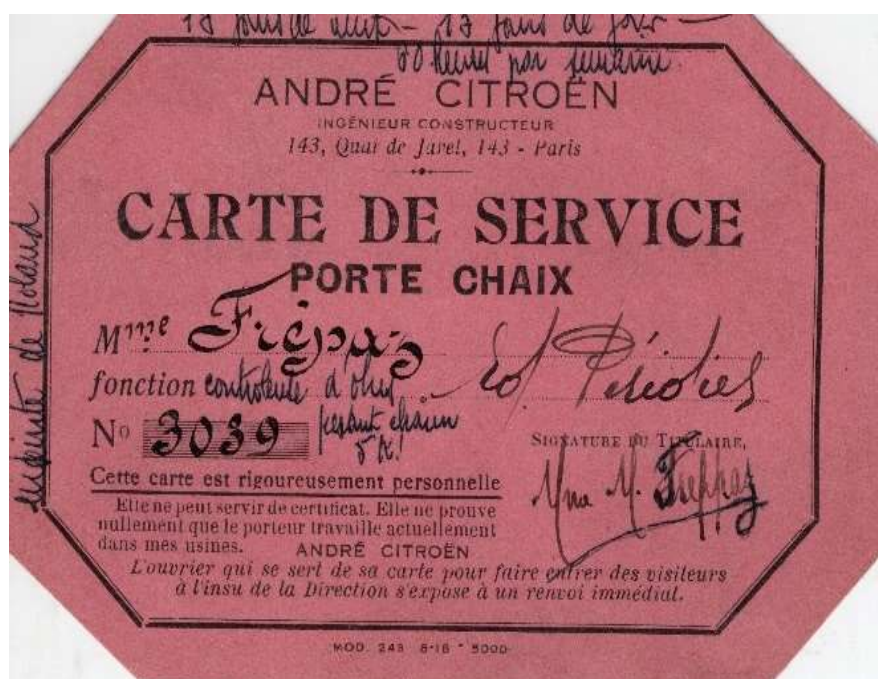 15 jours de nuit - 15 jours de jour -
60 heures par semaine.
ANDRÉ CITROËN
INGÉNIEUR CONSTRUCTEUR
143, Quai de Javel, 143 - Paris
CARTE DE SERVICE
PORTE CHAIX
Mme Frépaz
fonction controleuse d'obus
pesant chacun
5 K!
No 3039
SIGNATURE DU TITULAIRE,
Mme M. Freppaz
Cette carte est rigoureusement personnelle
Elle ne peut servir de certificat. Elle ne prouve
nullement que le porteur travaille actuellement
dans mes usines. ANDRÉ CITROËN
L'ouvrier qui se sert de sa carte pour faire entrer des visiteurs
à l'insu de la Direction s'expose à un renvoi immédiat.
MOD. 243 8-16 - 5000
enceinte de Roland